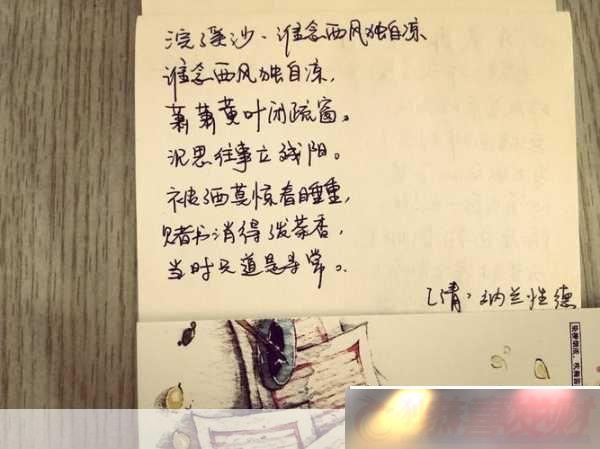 浣溪沙·谁念西风独自凉
谁念西风独自凉,
萧萧黄叶闭疏窗。
沉思往事立残阳。
被酒莫惊春睡重,
赌书消得泼茶香,
当时只道是寻常。
[清]纳兰性德